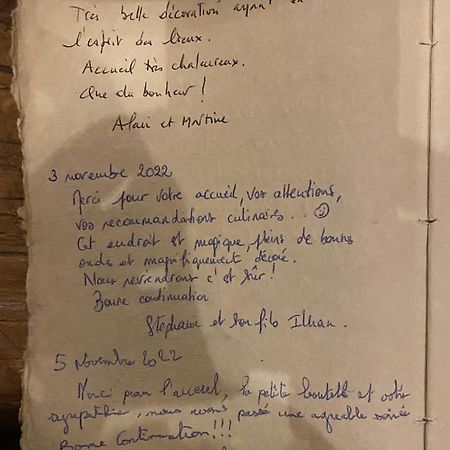 Très belle décoration ayant su
l'esprit des lieux.
Accueil très chaleureux.
Que du bonheur !
Alain et Martine
3 novembre 2022
Merci pour votre accueil, vos attentions,
vos recommandations culinaires...
Cet endroit est magique, pleins de bonnes
ondes et magnifiquement décoré.
Nous reviendrons c'est sûr !
Bonne continuation
Stéphanie et son fils Ilhan.
5 Novembre 2022
Merci pour l'accueil, la petite bouteille et votre
sympathie, nous avons passé une agréable soirée
Bonne Continuation !!!